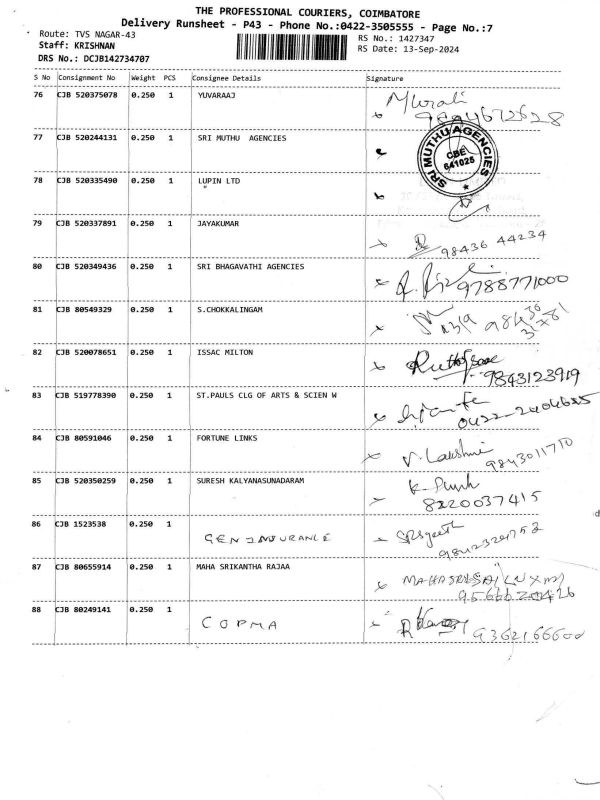 THE PROFESSIONAL COURIERS, COIMBATORE
Delivery Runsheet - P43 - Phone No.:0422-3505555 - Page No.:7
Route: TVS NAGAR-43
RS No.: 1427347
Staff: KRISHNAN
RS Date: 13-Sep-2024
DRS No.: DCJB142734707
S No Consignment No Weight PCS Consignee Details Signature
76 CJB 520375078 0.250 1 YUVARAAJ Murali
77 CJB 520244131 0.250 1 SRI MUTHU AGENCIES
SRI MUTHU AGENCIES
CBE
641025
78 CJB 520335490 0.250 1 LUPIN LTD
79 CJB 520337891 0.250 1 JAYAKUMAR
98436 44234
80 CJB 520349436 0.250 1 SRI BHAGAVATHI AGENCIES 9788771000
81 CJB 80549329 0.250 1 S.CHOKKALINGAM
82 CJB 520078651 0.250 1 ISSAC MILTON
9843123919
83 CJB 519778390 0.250 1 ST.PAULS CLG OF ARTS & SCIEN W
84 CJB 80591046 0.250 1 FORTUNE LINKS V. Lakshmi 9843011710
85 CJB 520350259 0.250 1 SURESH KALYANASUNADARAM
8220037415
86 CJB 1523538 0.250 1 GEN INSURANCE
87 CJB 80655914 0.250 1 MAHA SRIKANTHA RAJAA
9566620426
88 CJB 80249141 0.250 1 COPMA 9362166600